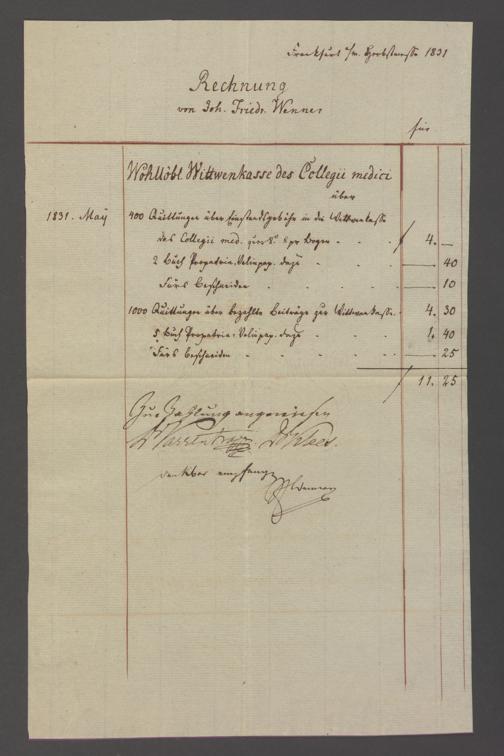 Frankfurt a/m. Herbstmesse 1831
Rechnung
von Joh. Friedr. Wenner
für
Wohllöbl. Wittwenkasse des Collegii medici
über
1831. May 400 Quittungen über Einstandsgebühr in die Wittwenkasse
des Collegii med. pr Bogen - - - f 4. —
2 Buch Propatria-Velinpap. dazu - - — 40
Fürs Beschneiden - - - — 10
1000 Quittungen über bezahlte Beiträge zur Wittwenkasse. 4. 30
5 Buch Propatria-Velinpap. dazu - - 1. 40
Fürs Beschneiden - - - — 25
f 11. 25
Zur Zahlung angewiesen
Dr Varrentrapp Dr
dankbar empfangen
JFWenner